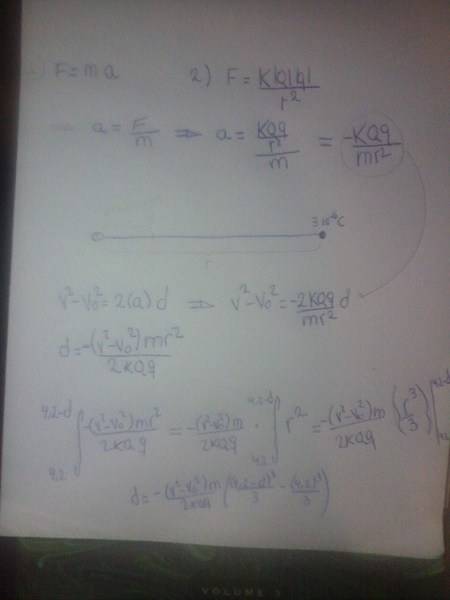 F=ma 2) F = K|Q||q| / r²
a = F/m ⇒ a = (KQq / r²) / m = -KQq / mr²
r
v²-v₀²=2(a)d ⇒ v²-v₀² = -2KQq/mr² d
d = -(v²-v₀²)mr² / 2KQq
∫ 4,2 4,2-d -(v²-v₀²)mr² / 2KQq = -(v²-v₀²)m / 2KQq · ∫ 4,2 4,2-d r² = -(v²-v₀²)m / 2KQq (r³/3) |
d = -(v²-v₀²)m / 2KQq ((4,2-d)³/3 - (4,2)³/3)
VOLUME